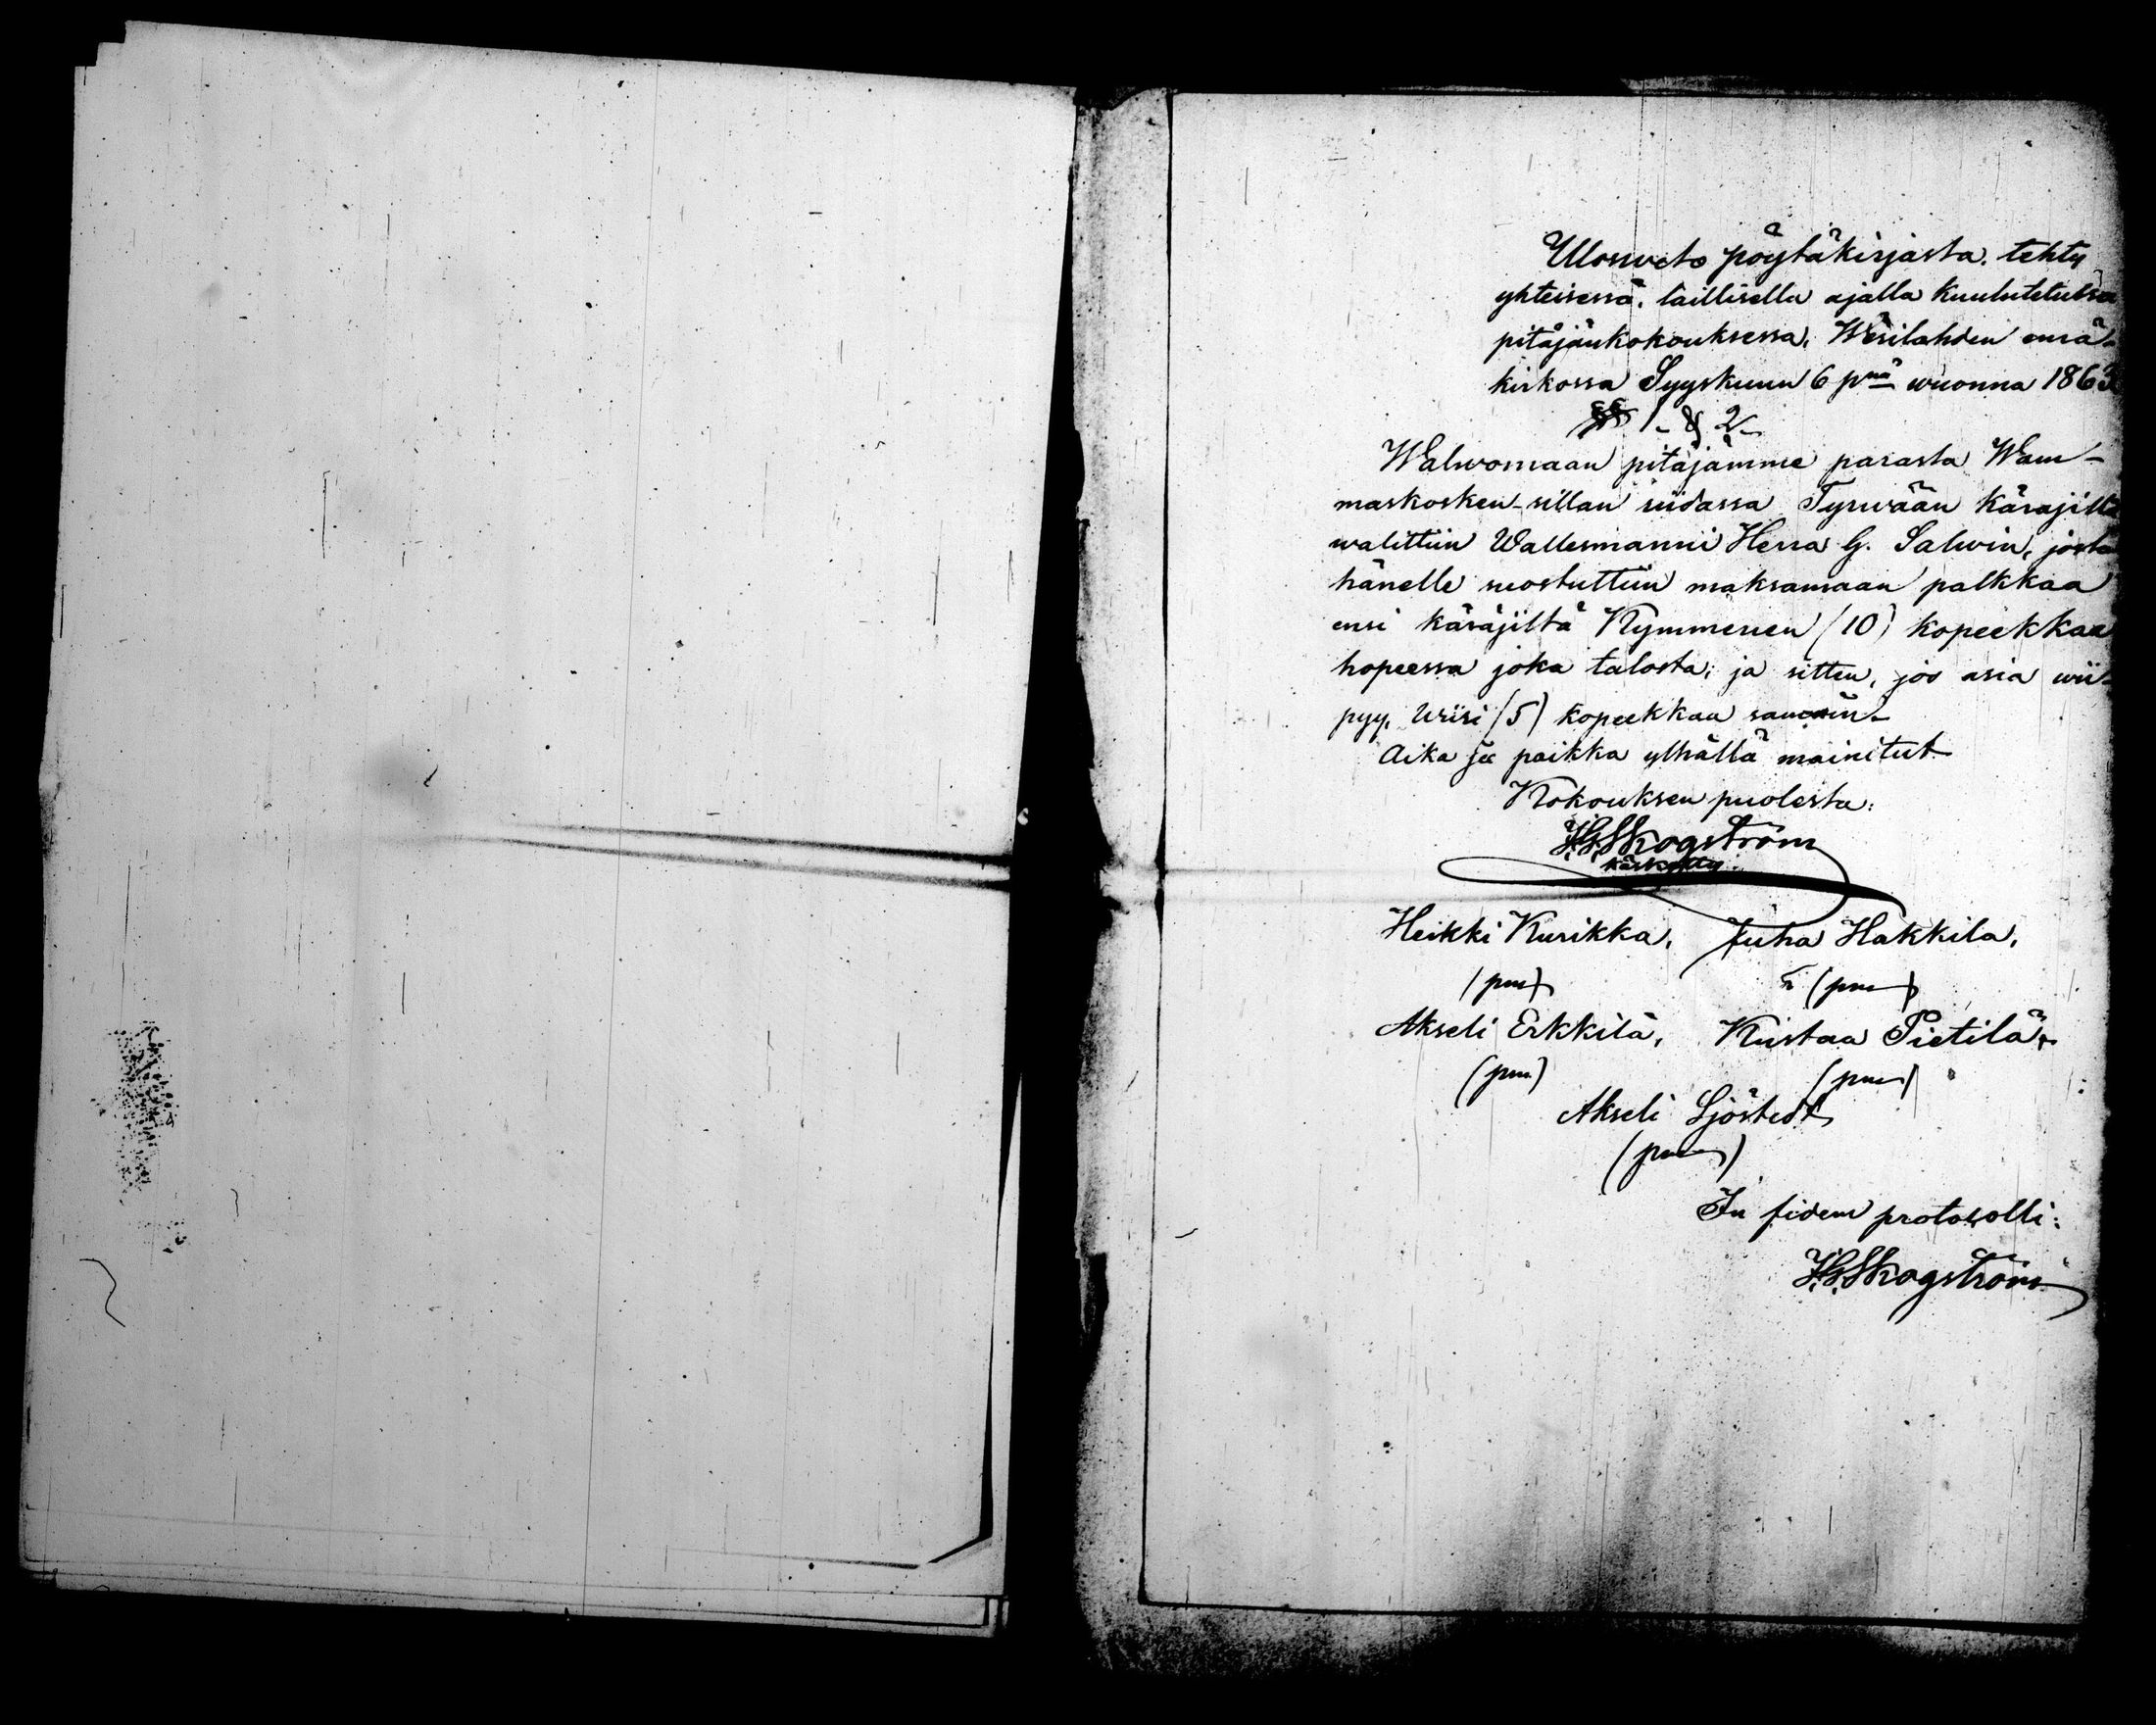 Ulosveto pöytäkirjasta, tehty
yhteisessä, laillisella ajalla kuulutetussa
pitäjänkokouksessa, Wesilahden emä-
kirkossa Syyskuun 6 pnä wuonna 1863
§§ 1 & 2
Walwomaan pitäjämme parasta Wam-
maskosken-sillan riidassa Tyrwään käräjillä
walittiin Wallesmanni Herra G. Salwin, josta
hänelle suostuttiin maksamaan palkkaa
ensi käräjiltä Kymmenen (10) kopeekkaa
hopeessa joka talosta; ja sitten, jos asia wii-
pyy, Wiisi (5) kopeekkaa samoin.
Aika ja paikka ylhällä mainitut
Kokouksen puolesta:
H.G. Skogström
käskystä
Heikki Kurikka, Juha Hakkila,
(pm) (pm)
Akseli Erkkilä, Kustaa Pietilä,
(pm) (pm)
Akseli Sjöstedt
(pm)
In fidem protocolli:
H.G. Skogström